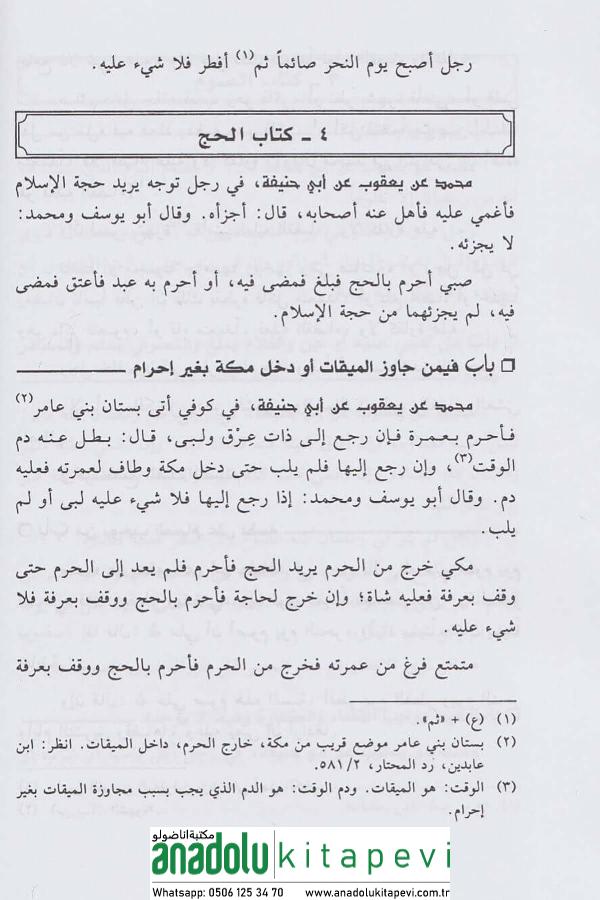 رجل أصبح يوم النحر صائماً ثم(١) أفطر فلا شيء عليه.
٤ - كتاب الحج
محمد عن يعقوب عن أبي حنيفة، في رجل توجه يريد حجة الإسلام
فأغمي عليه فأهل عنه أصحابه، قال: أجزأه. وقال أبو يوسف ومحمد:
لا يجزئه.
صبي أحرم بالحج فبلغ فمضى فيه، أو أحرم به عبد فأعتق فمضى
فيه، لم يجزئهما من حجة الإسلام.
باب فيمن جاوز الميقات أو دخل مكة بغير إحرام
محمد عن يعقوب عن أبي حنيفة، في كوفي أتى بستان بني عامر(٢)
فأحرم بعمرة فإن رجع إلى ذات عِرْق ولبى، قال: بطل عنه دم
الوقت(٣)، وإن رجع إليها فلم يلب حتى دخل مكة وطاف لعمرته فعليه
دم. وقال أبو يوسف ومحمد: إذا رجع إليها فلا شيء عليه لبى أو لم
يلب.
مكي خرج من الحرم يريد الحج فأحرم فلم يعد إلى الحرم حتى
وقف بعرفة فعليه شاة؛ وإن خرج لحاجة فأحرم بالحج ووقف بعرفة فلا
شيء عليه.
متمتع فرغ من عمرته فخرج من الحرم فأحرم بالحج ووقف بعرفة
(١) (ع) + «ثم».
(٢) بستان بني عامر موضع قريب من مكة، خارج الحرم، داخل الميقات. انظر: ابن
عابدين، رد المحتار، ٥٨١/٢.
(٣) الوقت: هو الميقات. ودم الوقت: هو الدم الذي يجب بسبب مجاوزة الميقات بغير
إحرام.
مكتبة اناضولو
anadolu kitapevi
Whatsapp: 0506 125 34 70 www.anadolukitapevi.com.tr